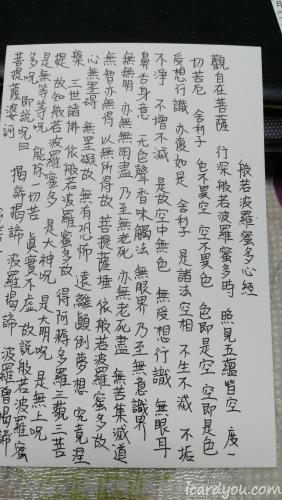 般若波羅蜜多心經
觀自在菩薩 行深般若波羅蜜多時 照見五蘊皆空 度一
切苦厄 舍利子 色不異空 空不異色 色即是空 空即是色
受想行識 亦復如是 舍利子 是諸法空相 不生不滅 不垢
不淨 不增不減 是故空中無色 無受想行識 無眼耳
鼻舌身意 無色聲香味觸法 無眼界 乃至無意識界
無無明 亦無無明盡 乃至無老死 亦無老死盡 無苦集滅道
無智亦無得 以無所得故 菩提薩埵 依般若波羅蜜多故
心無罣礙 無罣礙故 無有恐怖 遠離顛倒夢想 究竟涅
槃 三世諸佛 依般若波羅蜜多故 得阿耨多羅三藐三菩
提 故知般若波羅蜜多 是大神呪 是大明呪 是無上呪
是無等等呪 能除一切苦 真實不虛 故說般若波羅蜜
多呪 即說呪曰 揭諦揭諦 波羅揭諦 波羅僧揭諦
菩提薩婆訶
icardyou.com